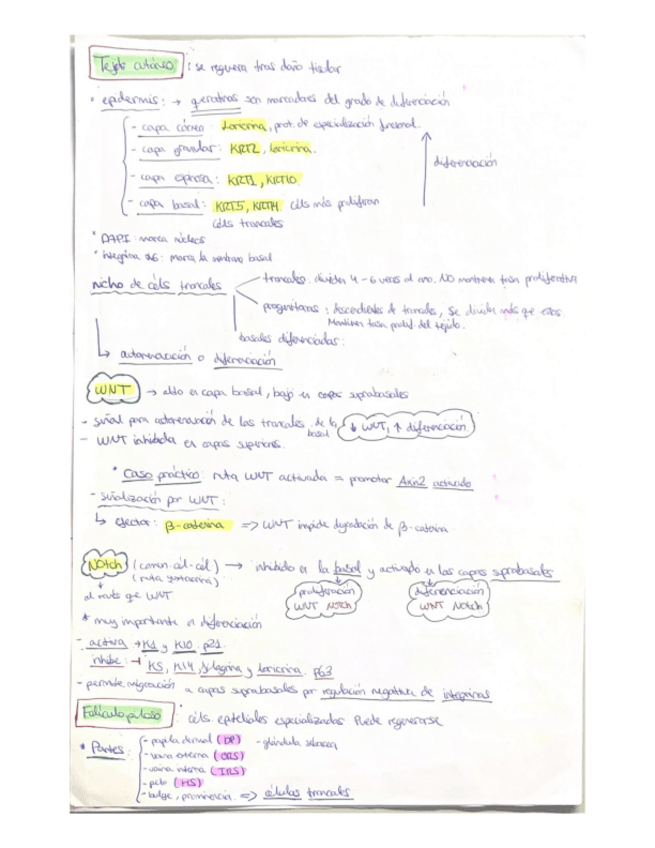 Tejido cutáneo : se regenera tras daño tisular
• epidermis: → queratinas son marcadores del grado de diferenciación
- capa córnea: Loricrina, prot. de especialización funcional.
- capa granular: KRT2, loricrina.
- capa espinosa: KRT1, KRT10
diferenciación
- capa basal: KRT5, KRT14 céls más proliferan
céls troncales
• DAPI: marca núcleos
• integrina α6: marca la membrana basal
nicho de céls troncales
troncales: dividen 4-6 veces al año. NO mantienen tasa proliferativa
progenitoras: descendientes de troncales, se dividen más que estas
Mantienen tasa prolif. del tejido.
basales diferenciadas:
↳ autorrenovación o diferenciación
WNT → alto en capa basal, bajo en capas suprabasales
- señal para autorrenovación de las troncales de la basal
↓ WNT, ↑ diferenciación
- WNT inhibida en capas superiores.
• Caso práctico: ruta WNT activada = promotor Axin2 activado
- señalización por WNT:
↳ efector: β-catenina => WNT impide degradación de β-catenina.
Notch (comun. cél-cél) → inhibido en la basal y activado en las capas suprabasales
(ruta yuxtacrina)
al revés que WNT
proliferación
WNT Notch
diferenciación
WNT Notch
* muy importante en diferenciación
- activa → K1 y K10. p21.
inhibe: ⊣ K5, K14, filagrina y loricrina. p63
- permite migración a capas suprabasales por regulación negativa de integrinas
Folículo piloso : céls. epiteliales especializadas. Puede regenerarse
• Partes:
- papila dermal (DP) - glándula sebácea
- vaina externa (ORS)
- vaina interna (IRS)
- pelo (HS)
- bulge, prominencia => células troncales